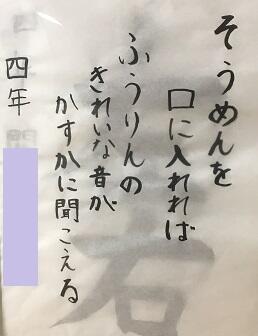 そうめんを
口に入れれば
ふうりんの
きれいな音が
かすかに聞こえる
四年